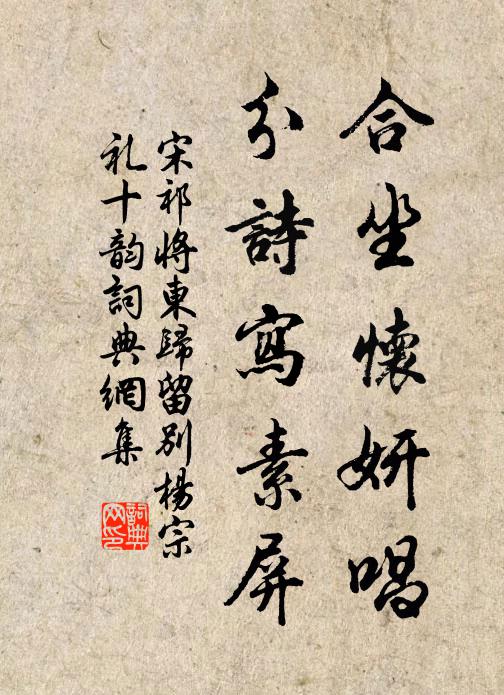 合坐懷妍唱
分詩寫素屏
宋祁將東歸留別楊宗
礼十韵詞典網集
詞典
网印